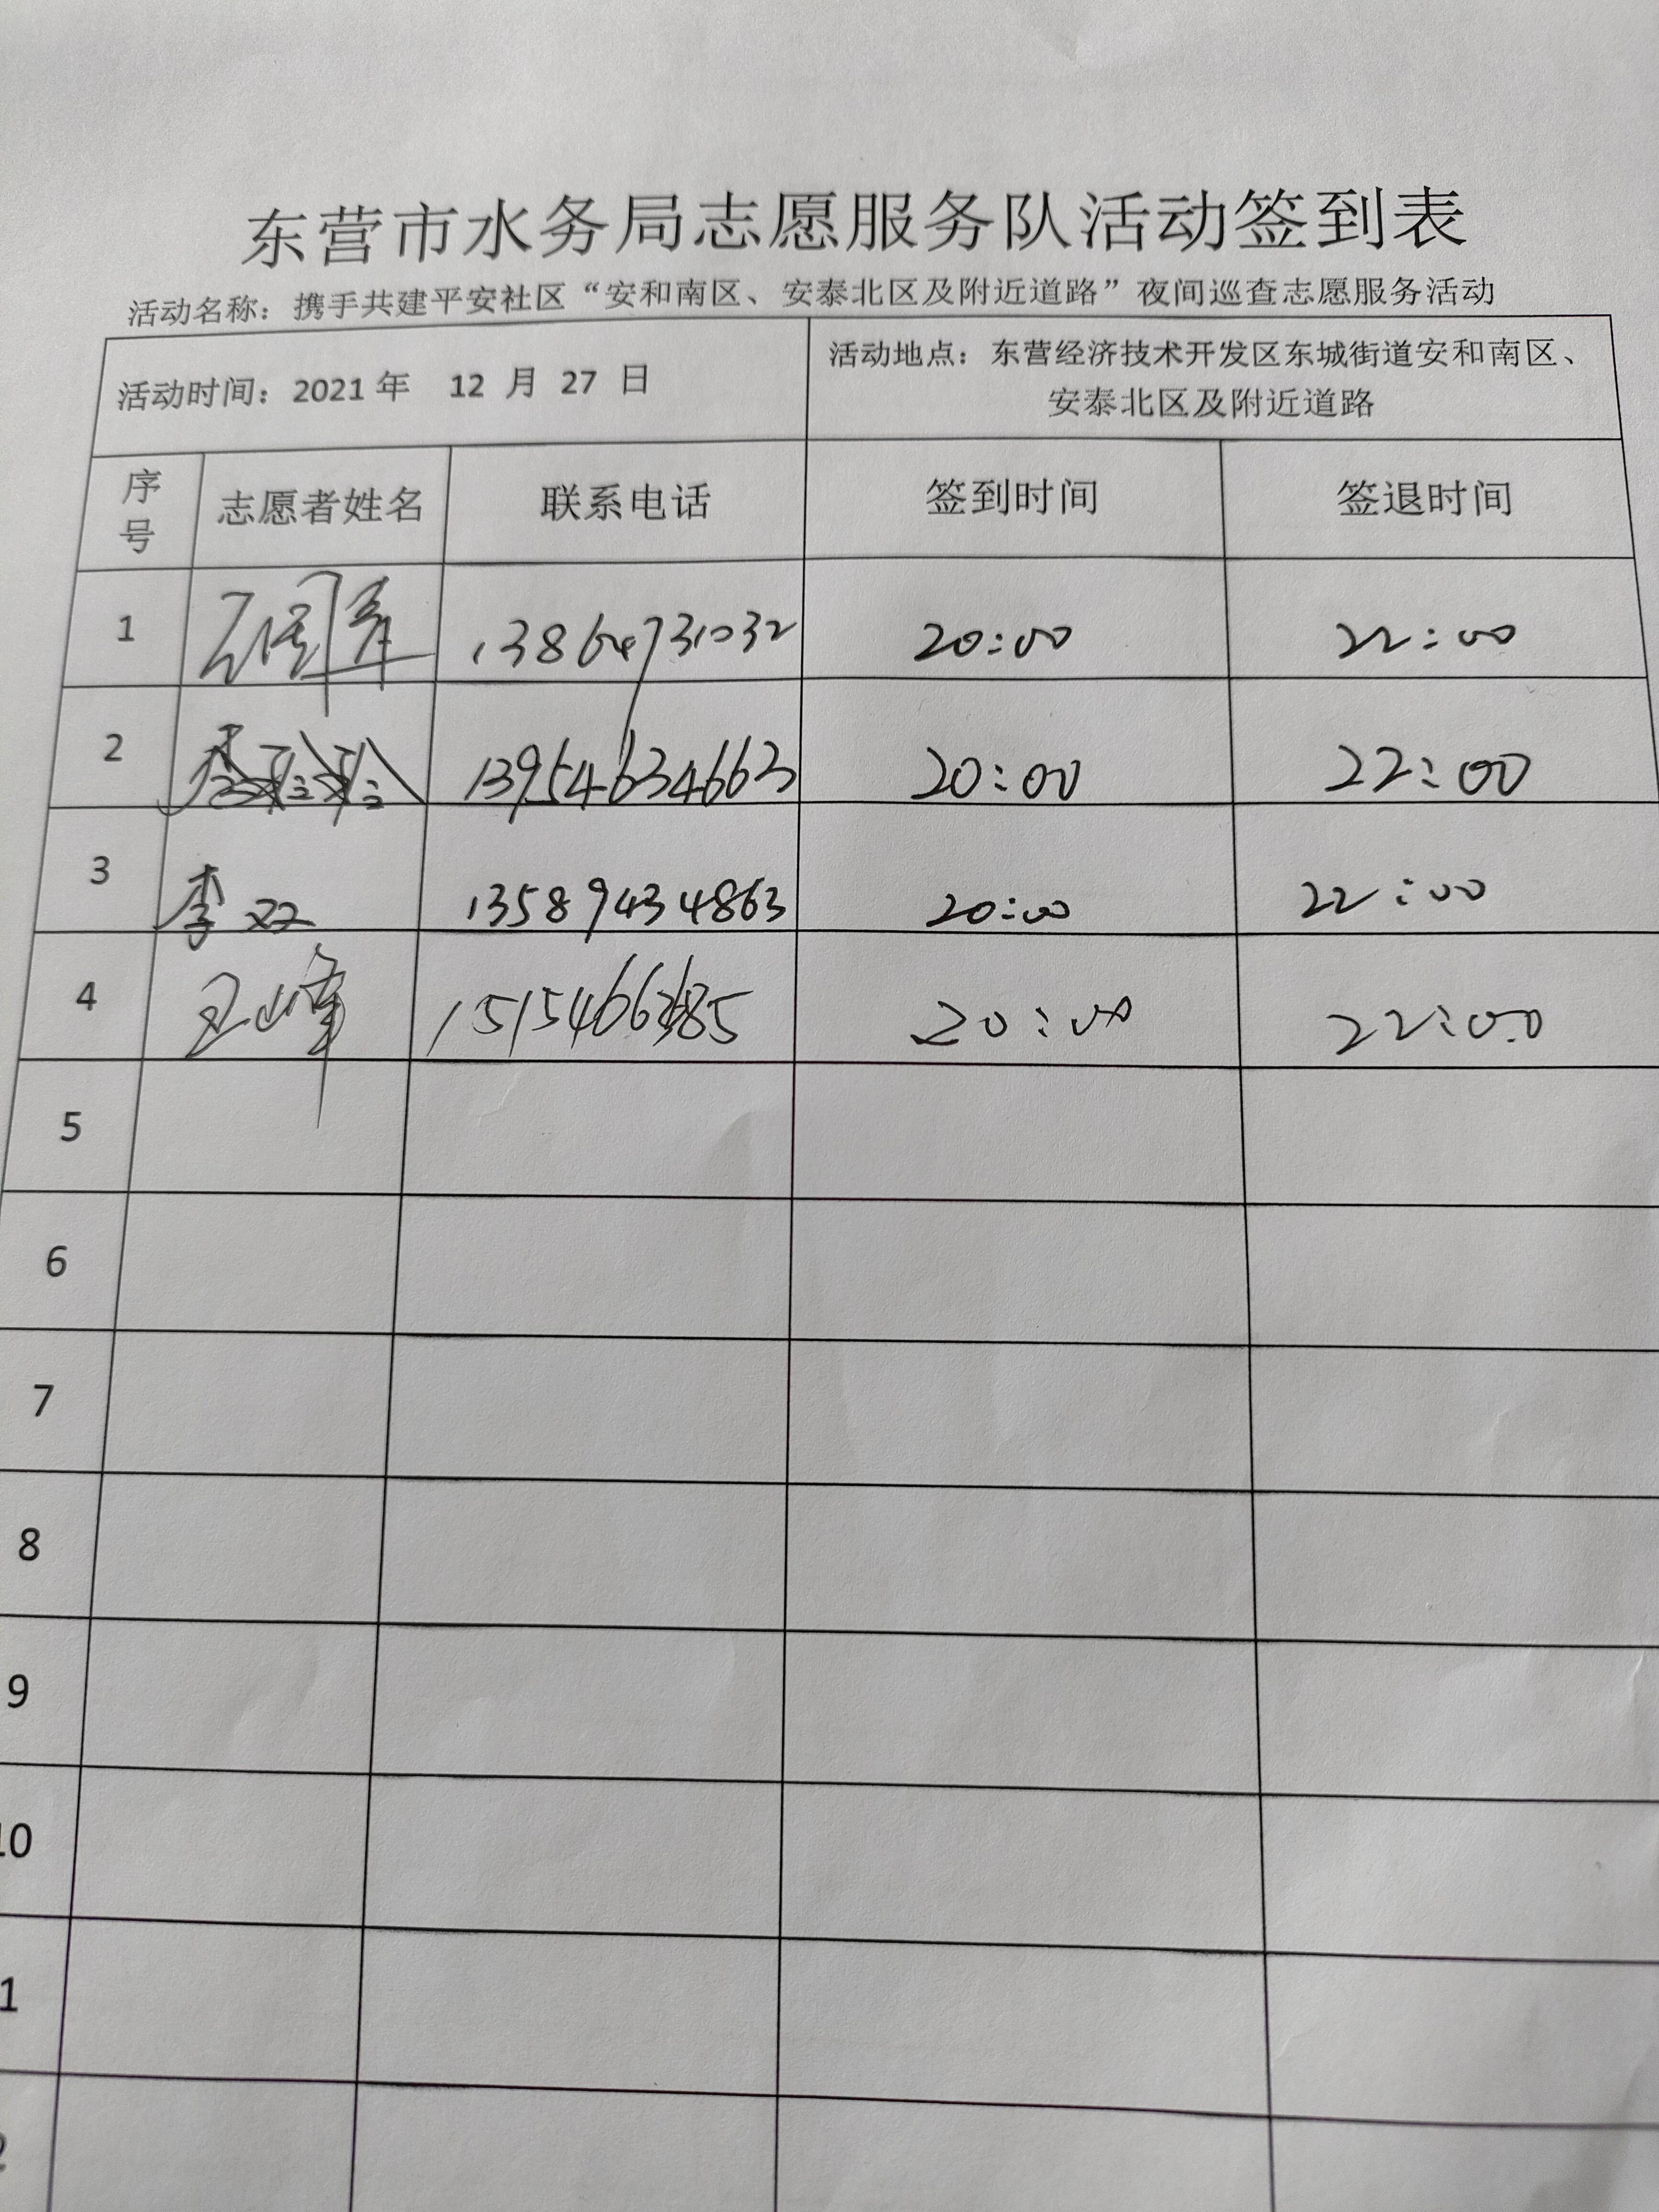 东营市水务局志愿服务队活动签到表
活动名称：携手共建平安社区“安和南区、安泰北区及附近道路”夜间巡查志愿服务活动
活动时间：2021 年 12 月 27 日
活动地点：东营经济技术开发区东城街道安和南区、
安泰北区及附近道路
序号 志愿者姓名 联系电话 签到时间 签退时间
1 13864731032 20:00 22:00
2 13954634663 20:00 22:00
3 李双 13589434863 20:00 22:00
4 王峰 20:00 22:00
5
6
7
8
9
10
1
2